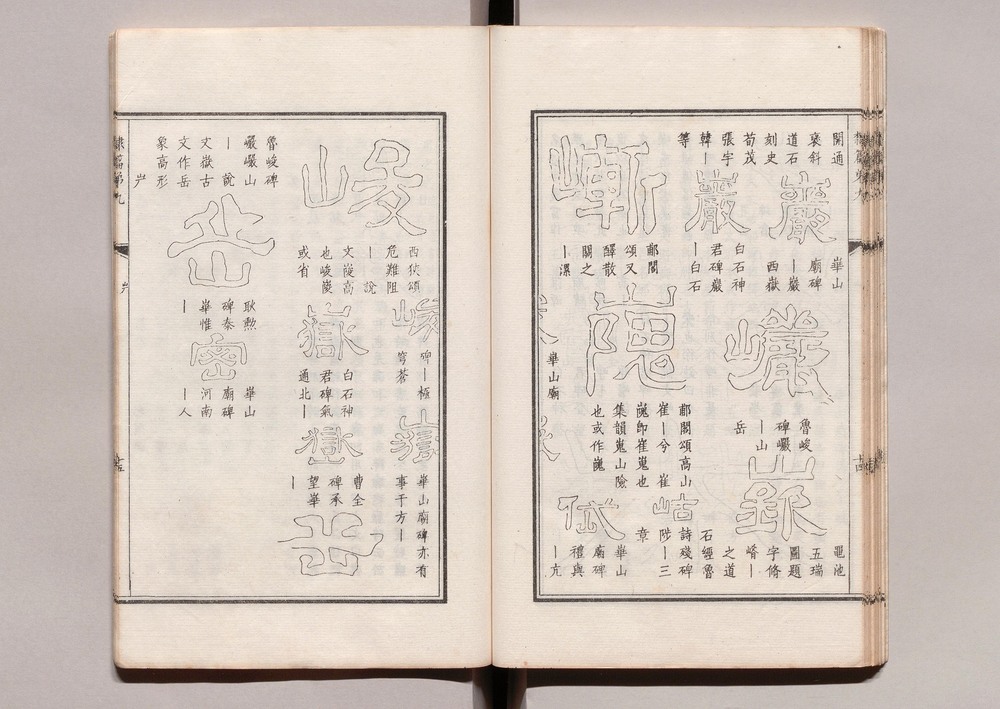 開通
褒斜
道石
刻史
荀茂
張宇
韓｜
等
巖
華山
廟碑
｜巖
西嶽
巖
白石神
君碑巖
｜白石
巉
魯峻
碑巖
｜山
岳
黽池
五瑞
圖題
字脩
崤｜
之道
石經魯
詩殘碑
陟｜三
章
岵
嶃
郙閣
頌又
醳散
關之
｜漯
隗
郙閣頌高山
崔｜兮 崔
嵬卽崔嵬也
集韻嵬山險
也或作巍
華山
廟碑
禮與
｜亢
岱
華山廟
西狹頌
危難阻
｜｜說
文陵高
也峻陵
或省
峻
碑｜極
穹蒼
華山廟碑亦有
事于方｜
嶽
白石神
君碑氣
通北｜
曹全
碑承
望華
｜
魯峻碑
巖巖山
｜說
文嶽古
文作岳
象高形
岳
耿勳
碑泰
華惟
｜
密
華山
廟碑
河南
｜人